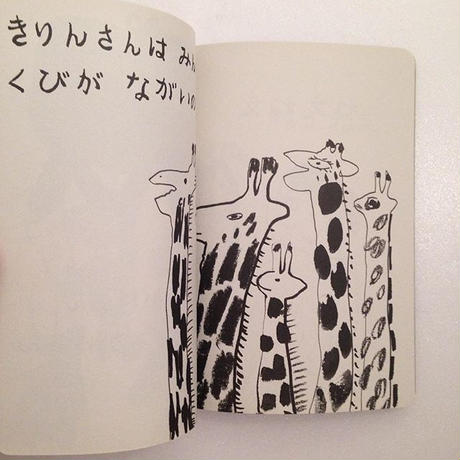 きりんさんは み
くびが ながいの